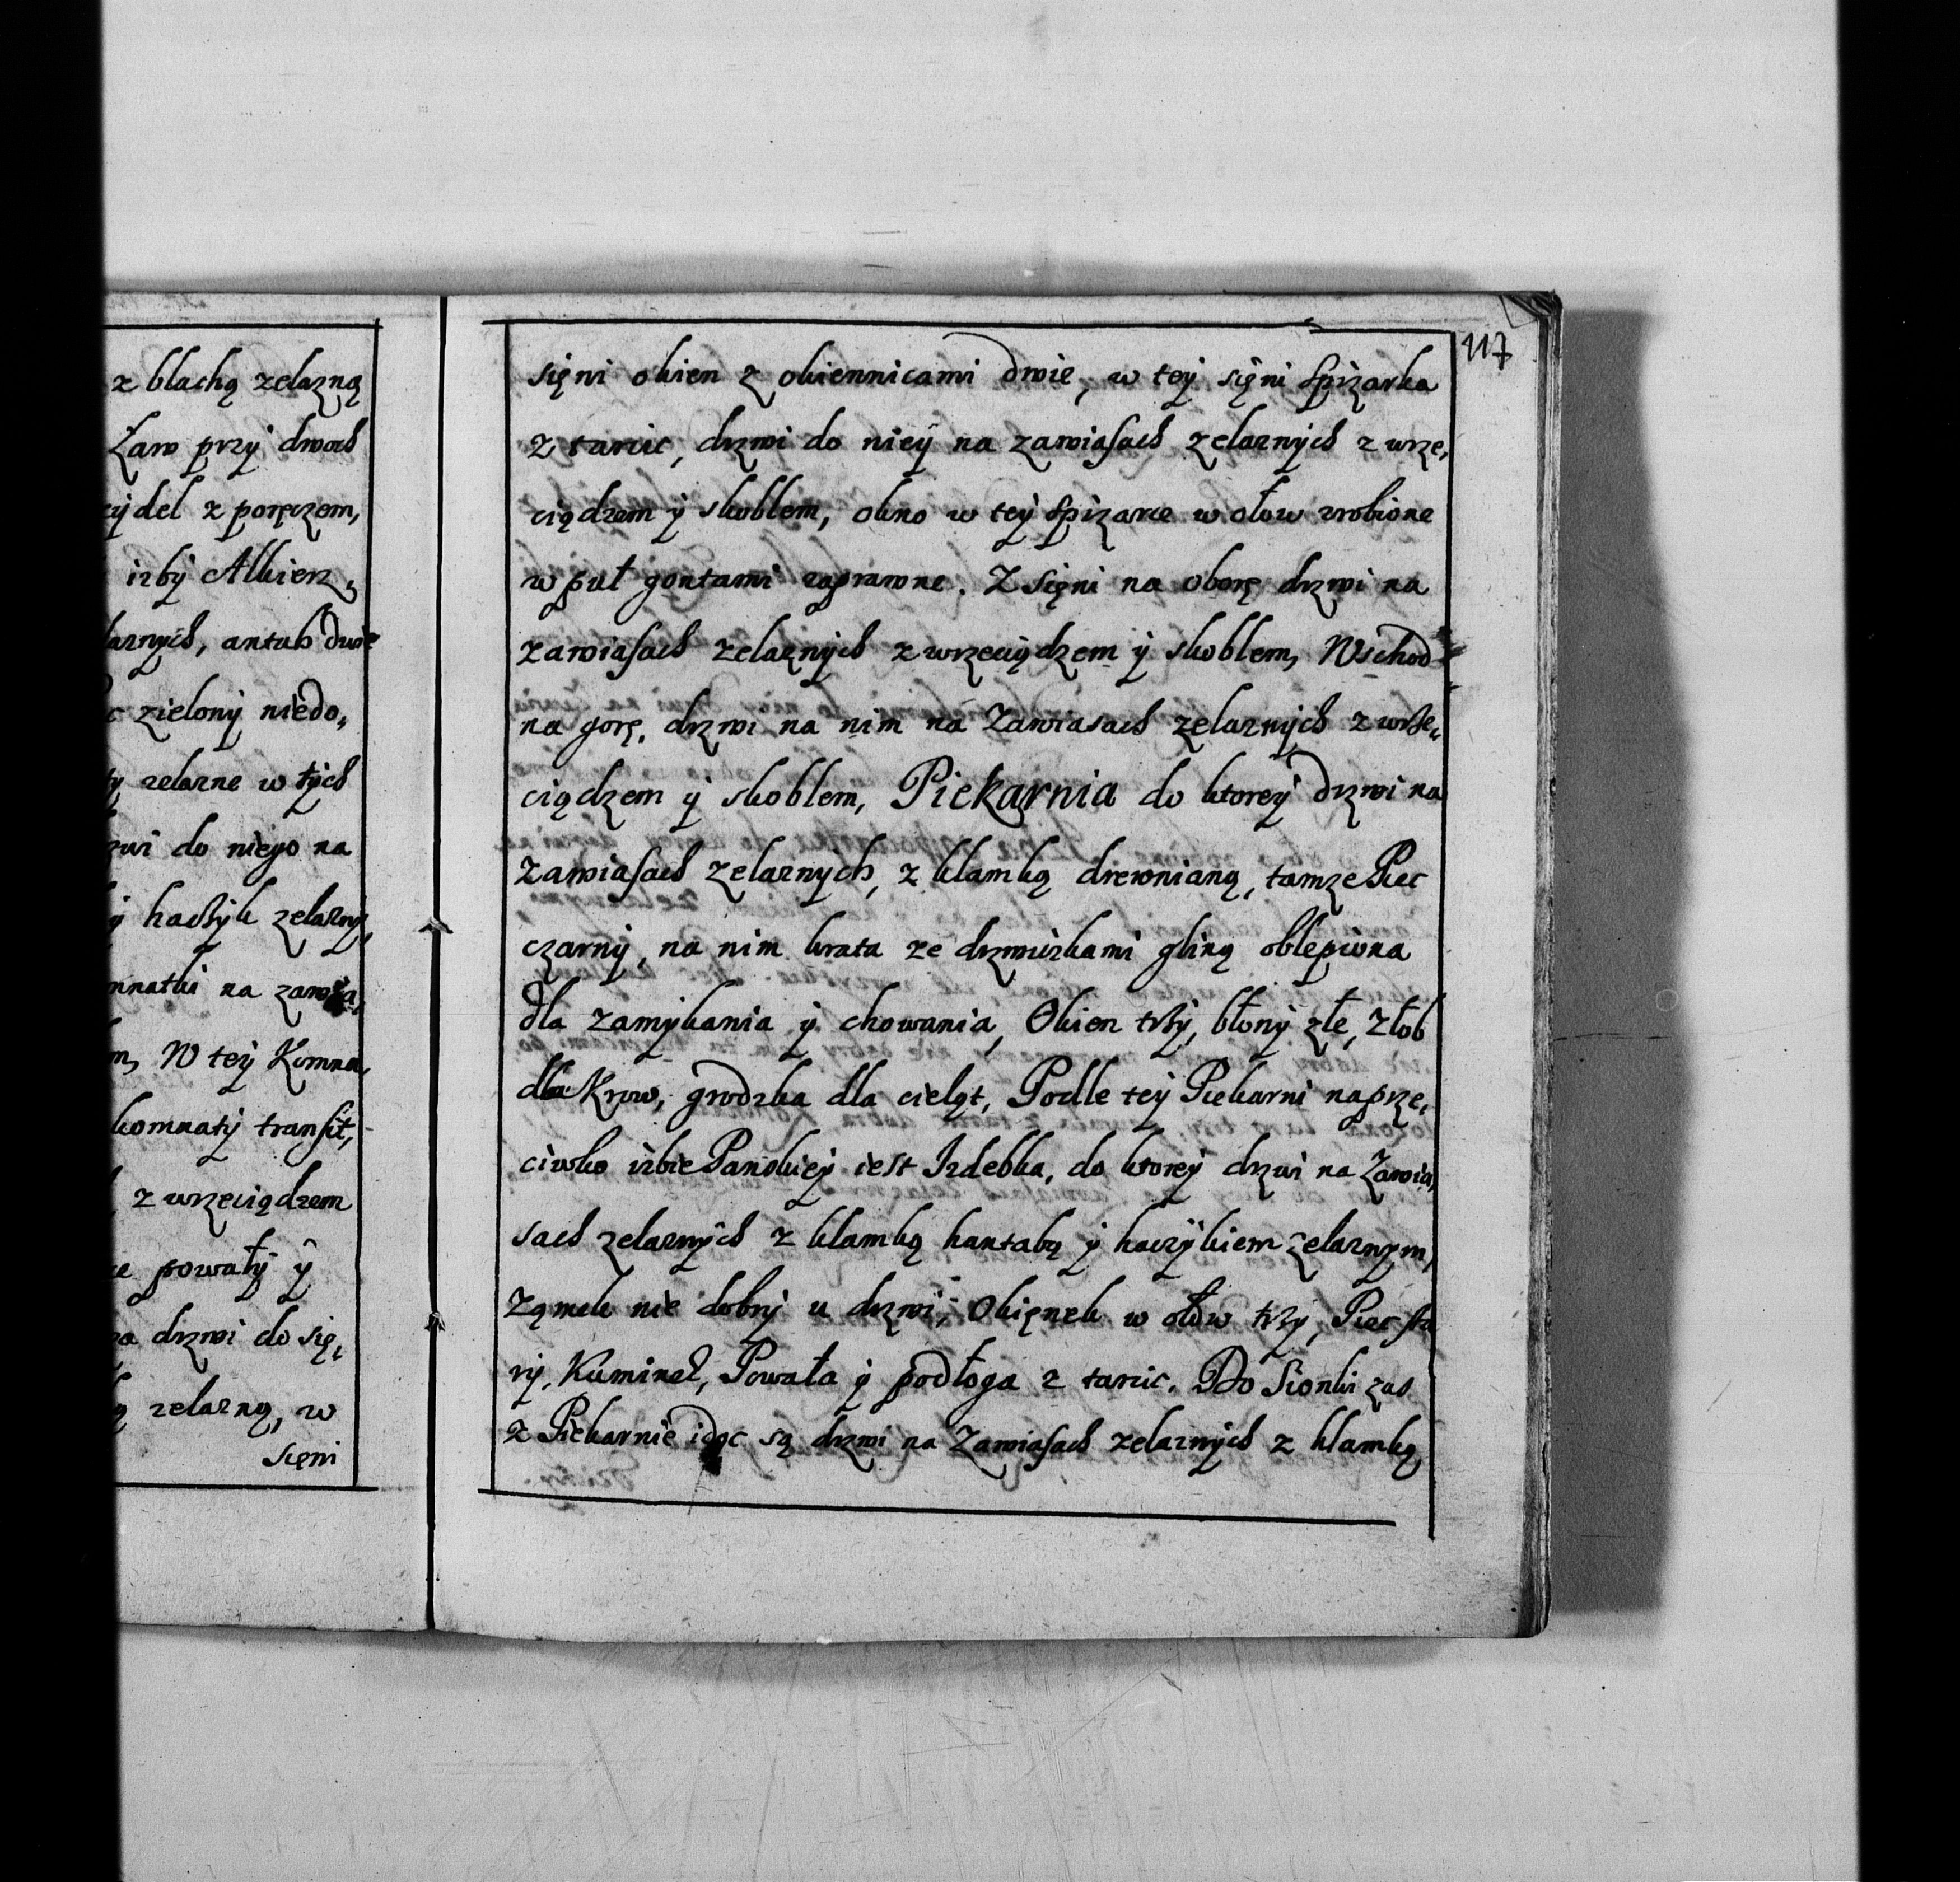 z blachą zelazną
Ław przy dwoch
zydel z poręczem,
izby Alkierz,
laznych, antab dwie
c zielony niedo,
ty zelazne w tych
zwi do niego na
y haczyk zelazny,
mnatki na zawia,
m, W tey Komna,
komnaty transit,
z wrzeciądzem
e powały y
a drzwi do się,
ą zelazną, w
sięni
117
sięni okien z okiennicami dwie, w tey sięni spizarka
z tarcic, drzwi do niey na zawiasach zelaznych z wrze,
ciądzem y skoblem, okno w tey spizarce w ołow zrobione
w puł gontami zaprawne. Z sięni na oborę drzwi na
zawiasach zelaznych z wrzeciądzem y skoblem, Wschod
na gorę, drzwi na nim na Zawiasach zelaznych z wrze,
ciądzem y skoblem, Piekarnia do ktorey drzwi na
zawiasach zelaznych, z klamką drewnianą, tamze Piec
czarny, na nim krata ze drzwiczkami gliną oblepiona
dla zamykania y chowania, Okien trzy, błony złe, Złob
dla Krow, grodzka dla cieląt, Podle tey Piekarni naprze,
ciwko izbie Panskiey iest Izdebka, do ktorey drzwi na Zawia,
sach zelaznych z klamką hantabą y haczykiem zelaznym,
Ząmek nie dobry u drzwi, Okięnek w ołow trzy, Piec sta
ry, Kuminek, Powała y podłoga z tarcic. Do Sionki zas
z Piekarnie idąc są drzwi na Zawiasach zelaznych z klamką